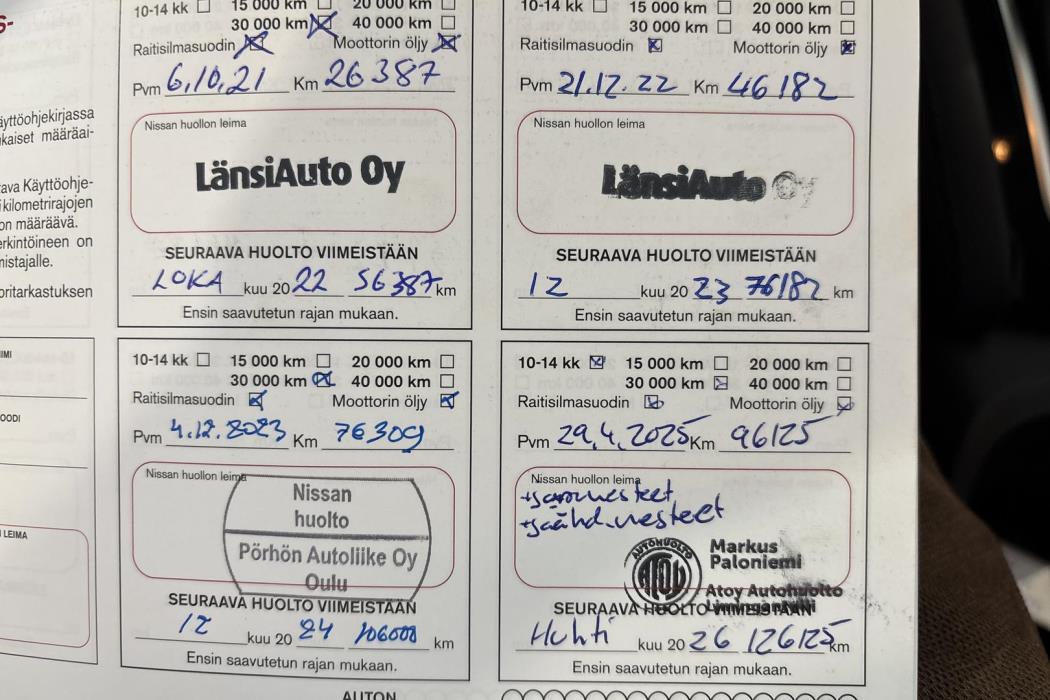 S-
äyttöohjekirjassa
kaiset määräai-
tava Käyttöohje-
kilometrirajojen
on määräävä.
erkintöineen on
nistajalle.
oritarkastuksen
IMI
OODI
LEIMA
10-14 kk 15 000 km 20 000 km
30 000 km 40 000 km
Raitisilmasuodin Moottorin öljy
Pvm 6,10,21 Km 26387
Nissan huollon leima
LänsiAuto Oy
SEURAAVA HUOLTO VIIMEISTÄÄN
LOKA kuu 20 22 56387 km
Ensin saavutetun rajan mukaan.
10-14 kk 15 000 km 20 000 km
30 000 km 40 000 km
Raitisilmasuodin Moottorin öljy
Pvm 21.12.22 Km 46182
Nissan huollon leima
LänsiAuto Oy
SEURAAVA HUOLTO VIIMEISTÄÄN
12 kuu 20 23 76182 km
Ensin saavutetun rajan mukaan.
10-14 kk 15 000 km 20 000 km
30 000 km 40 000 km
Raitisilmasuodin Moottorin öljy
Pvm 4.12.2023 Km 76309
Nissan huollon leima
Nissan
huolto
Pörhön Autoliike Oy
Oulu
SEURAAVA HUOLTO VIIMEISTÄÄN
12 kuu 20 24 106000 km
Ensin saavutetun rajan mukaan.
10-14 kk 15 000 km 20 000 km
30 000 km 40 000 km
Raitisilmasuodin Moottorin öljy
Pvm 29.4.2025 Km 96125
Nissan huollon leima
+jarrunesteet
+jäähd.nesteet
AUTOHUOLTO
ATOY
Markus
Paloniemi
Atoy Autohuolto
SEURAAVA HUOLTO VIIMEISTÄÄN
Huhti kuu 20 26 126125 km
Ensin saavutetun rajan mukaan.
AUTON